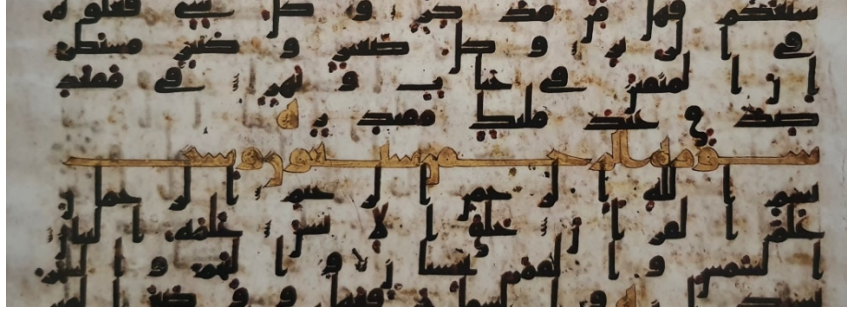 شياعكم فهل من مدكر و كل شي فعلوه
في الزبر و كل صغير و كبير مستطر
ان المتقين في جنت و نهر في مقعد
صدق عند مليك مقتدر
سورة الرحمن سبعون وست
بسم الله الرحمن الرحيم الرحمن
علم القران خلق الانسن علمه البيان
الشمس و القمر بحسبان و النجم و الشجر
يسجدان و السما رفعها و وضع الميز